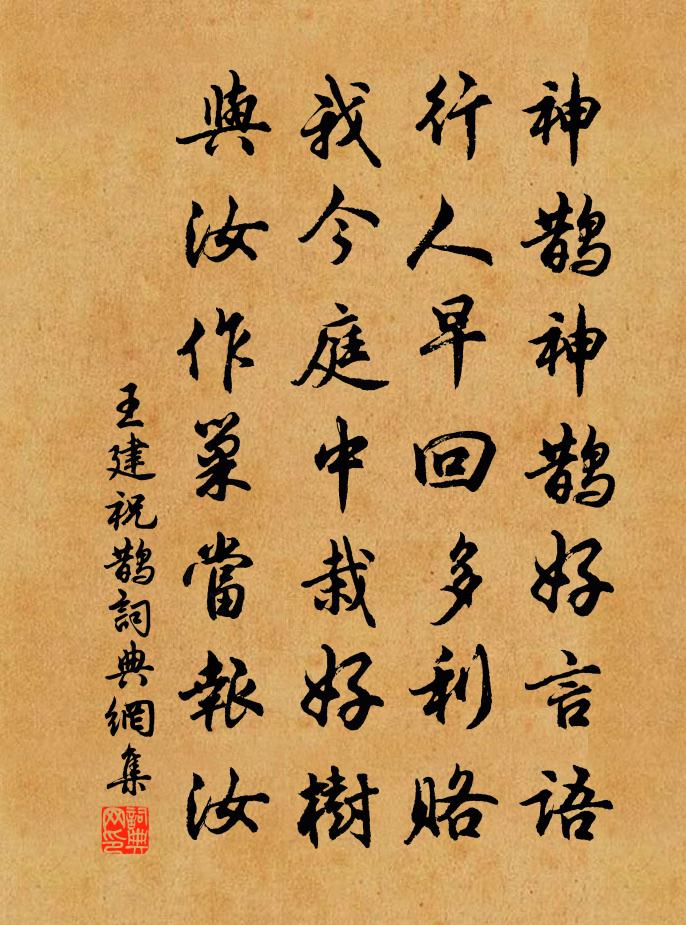 神鵲神鵲好言語
行人早回多利賂
我今庭中栽好樹
與汝作巢當報汝
王建祝鵲詞典網集
詞典网印